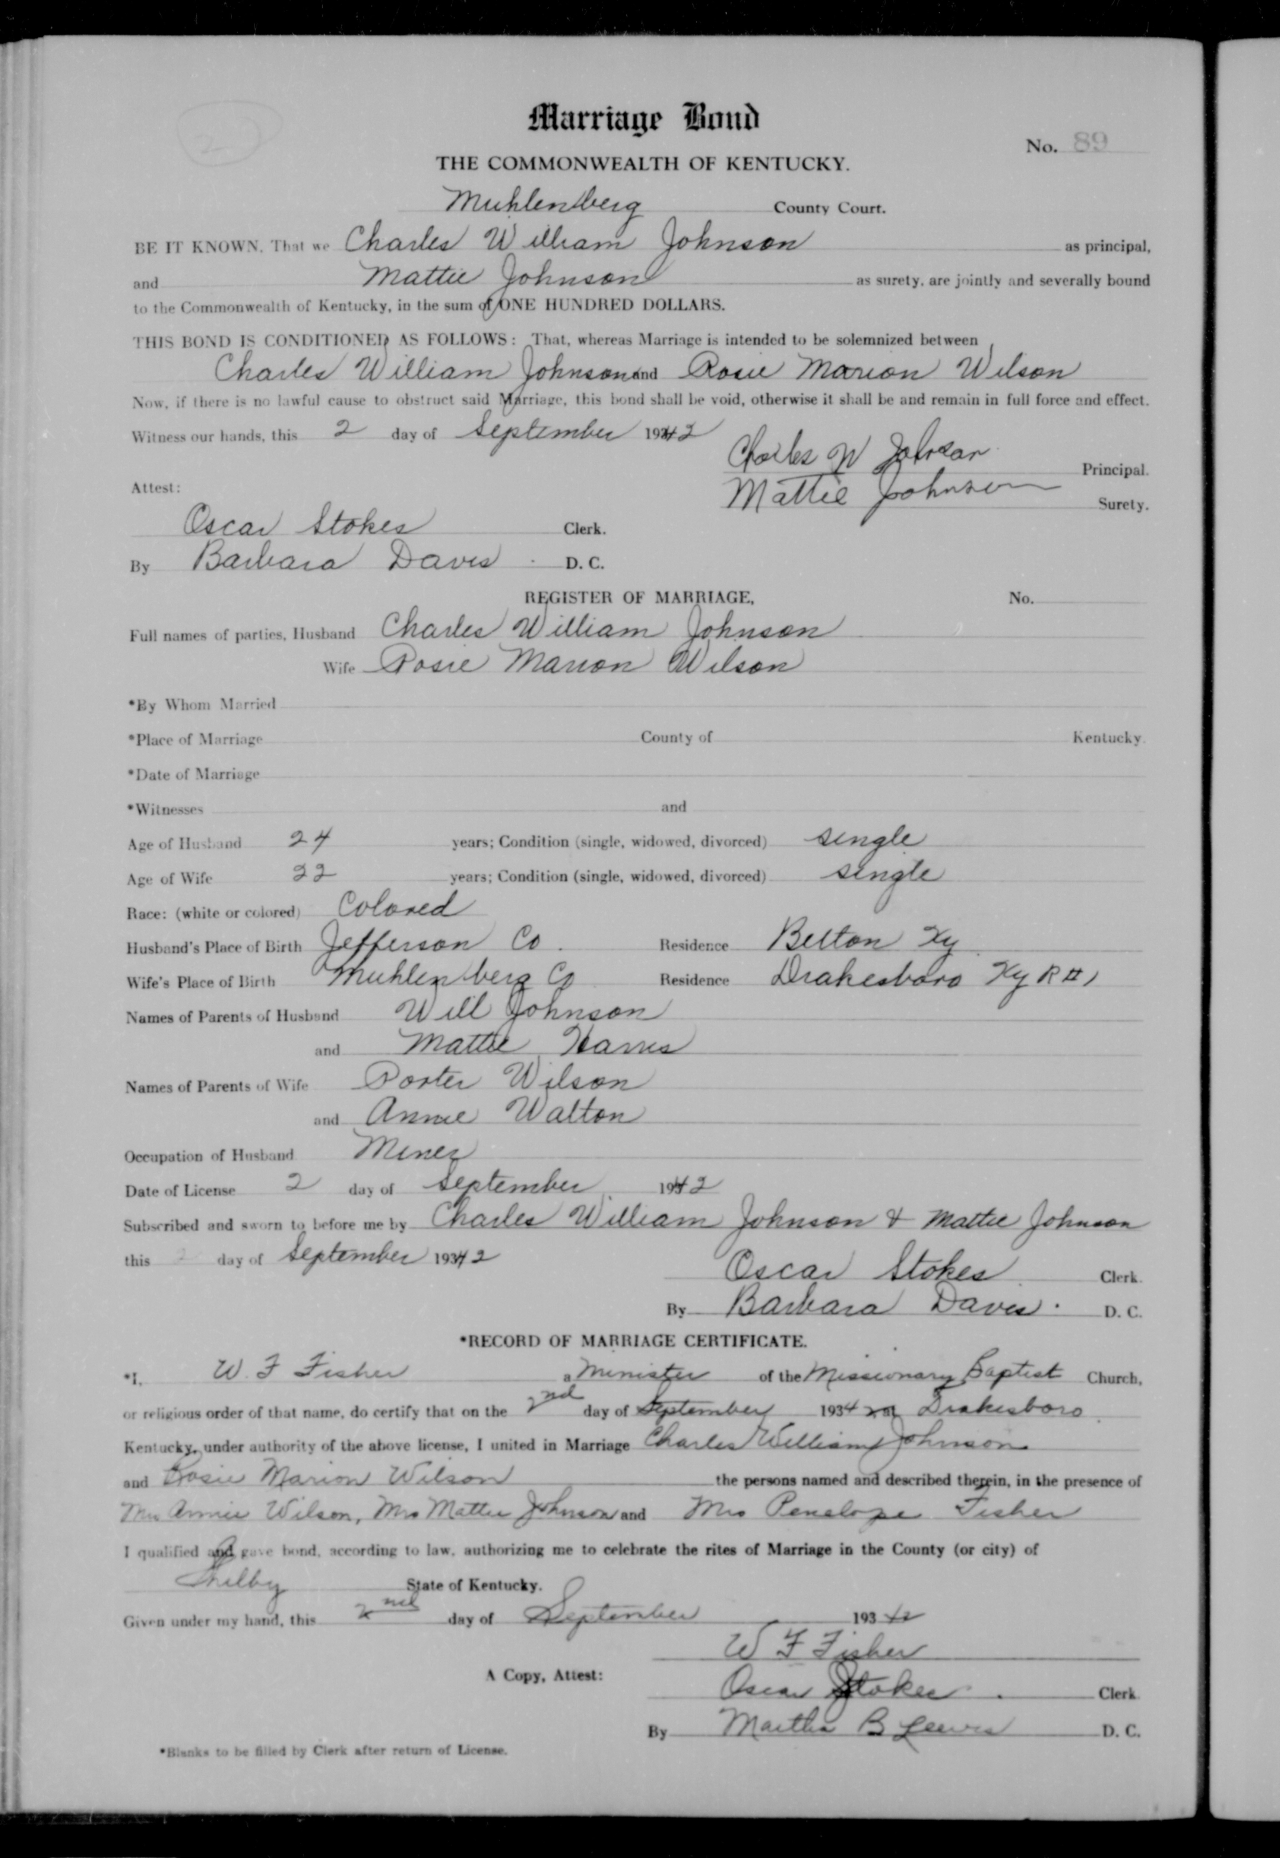 Marriage Bond
No. 89
THE COMMONWEALTH OF KENTUCKY.
Muhlenberg County Court.
BE IT KNOWN, That we Charles William Johnson as principal,
and Mattie Johnson as surety, are jointly and severally bound
to the Commonwealth of Kentucky, in the sum of ONE HUNDRED DOLLARS.
THIS BOND IS CONDITIONED AS FOLLOWS: That, whereas Marriage is intended to be solemnized between
Charles William Johnson and Rosie Marion Wilson
Now, if there is no lawful cause to obstruct said Marriage, this bond shall be void, otherwise it shall be and remain in full force and effect.
Witness our hands, this 2 day of September 1942
Charles W Johnson Principal.
Attest:
Mattie Johnson Surety.
Oscar Stokes Clerk.
By Barbara Davis D. C.
REGISTER OF MARRIAGE, No.
Full names of parties, Husband Charles William Johnson
Wife Rosie Marion Wilson
*By Whom Married
*Place of Marriage County of Kentucky.
*Date of Marriage
*Witnesses and
Age of Husband 24 years; Condition (single, widowed, divorced) single
Age of Wife 22 years; Condition (single, widowed, divorced) single
Race: (white or colored) Colored
Husband's Place of Birth Jefferson Co. Residence Belton Ky
Wife's Place of Birth Muhlenberg Co Residence Drakesboro Ky R #1
Names of Parents of Husband Will Johnson
and Mattie Harris
Names of Parents of Wife Porter Wilson
and Annie Walton
Occupation of Husband Miner
Date of License 2 day of September 1942
Subscribed and sworn to before me by Charles William Johnson & Mattie Johnson
this 2 day of September 19342
Oscar Stokes Clerk.
By Barbara Davis. D. C.
*RECORD OF MARRIAGE CERTIFICATE.
*I, W. F Fisher a Minister of the Missionary Baptist Church,
or religious order of that name, do certify that on the 2nd day of September 19342 at Drakesboro
Kentucky, under authority of the above license, I united in Marriage Charles William Johnson
and Rosie Marion Wilson the persons named and described therein, in the presence of
Mrs Annie Wilson, Mrs Mattie Johnson and Mrs Penelope Fisher
I qualified and gave bond, according to law, authorizing me to celebrate the rites of Marriage in the County (or city) of
Shelby State of Kentucky.
Given under my hand, this 2nd day of September 19342
W F Fisher
A Copy, Attest:
Oscar Stokes. Clerk
By Martha B Lewis D. C.
*Blanks to be filled by Clerk after return of License.